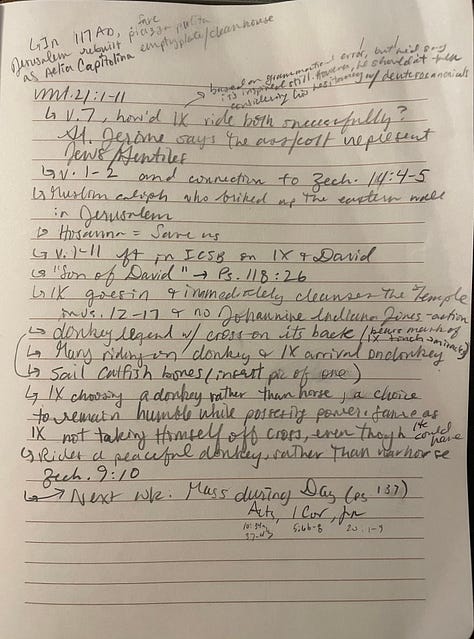 ↳In 117 AD, fare piazza pulita
Jerusalem rebuilt empty place/clean house
as Aelia Capitolina
based on grammatical error, but he'd say
it is inspired still. However, he should it
considering his hesitancy w/ deuterocanonicals
Mt. 21:1-11
↳ v.7, how'd IX ride both successfully?
St. Jerome says the ass/colt represent
Jews/Gentiles
↳ v. 1-2 and connection to Zech. 14:4-5
↳ Muslim caliph who bricked up the eastern wall
in Jerusalem
↳ Hosanna = Save us
↳ v. 7-11 ft in ICSB on IX & David
↳ "Son of David" → Ps. 118:26
↳ IX goes in & immediately cleanses the Temple
in vs. 12-17 & no Johannine Indiana Jones-action
↳ donkey legend w/ cross on its back (bears mark of
IX
↳ Mary riding on donkey & IX arrival on donkey
↳ Sail Catfish bones (insert pic of one)
↳ IX choosing a donkey rather than horse, a choice
to remain humble while possessing power. Same as
IX not taking Himself off cross, even though He could have
↳ Rides a peaceful donkey, rather than warhorse
Zech. 9:10
↳ Next wk: Mass during Day (ps 137)
Acts, 1 Cor, Jn
10:34a, 5:6b-8 20:1-9
37-43